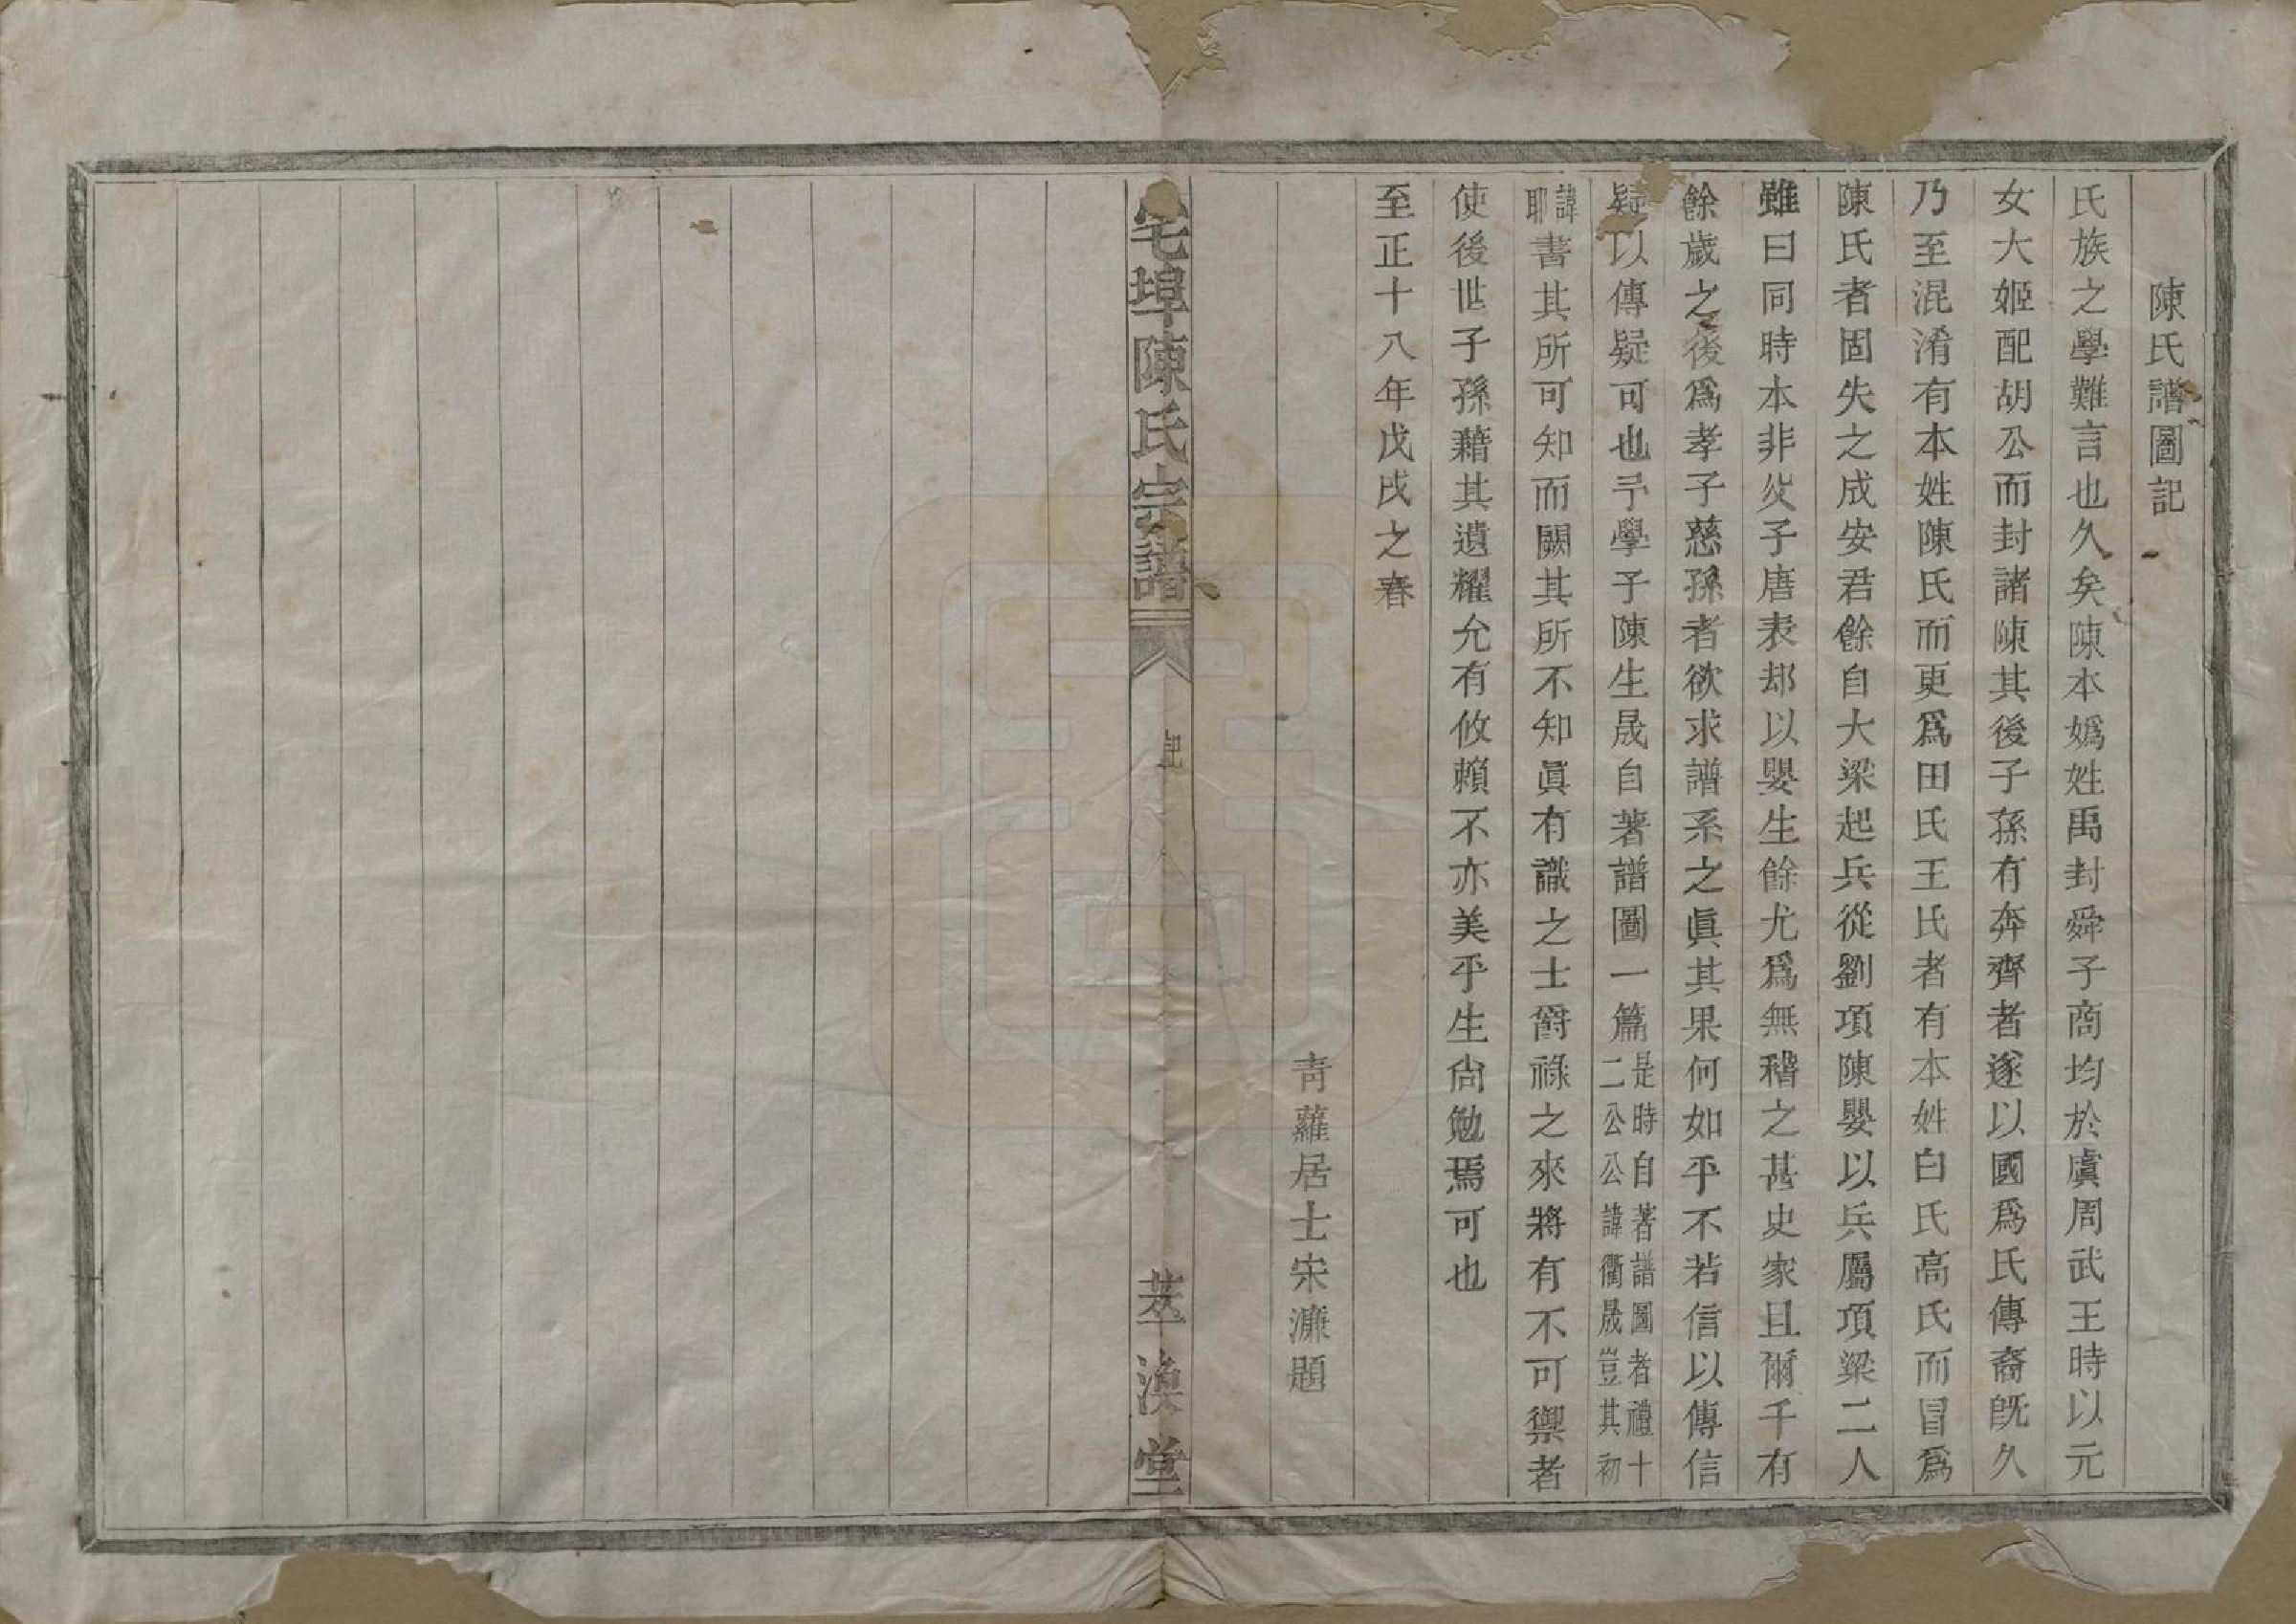 陳氏譜圖記
氏族之學難言也久矣陳本嬀姓禹封舜子商均於虞周武王時以元
女大姬配胡公而封諸陳其後子孫有奔齊者遂以國爲氏傳裔旣久
乃至混淆有本姓陳氏而更爲田氏王氏者有本姓白氏高氏而冒爲
陳氏者固失之成安君餘自大梁起兵從劉項陳嬰以兵屬項梁二人
雖曰同時本非父子唐表却以嬰生餘尤爲無稽之甚史家且爾千有
餘歲之後爲孝子慈孫者欲求譜系之眞其果何如乎不若信以傳信
疑以傳疑可也予學子陳生晟自著譜圖一篇是時自著譜圖者禮十二公公諱衢晟豈其初
諱耶書其所可知而闕其所不知眞有識之士爵祿之來將有不可禦者
使後世子孫藉其遺耀允有攸賴不亦美乎生尙勉焉可也
至正十八年戊戌之春
青蘿居士宋濂題
宅埠陳氏宗譜
記
萃渙堂